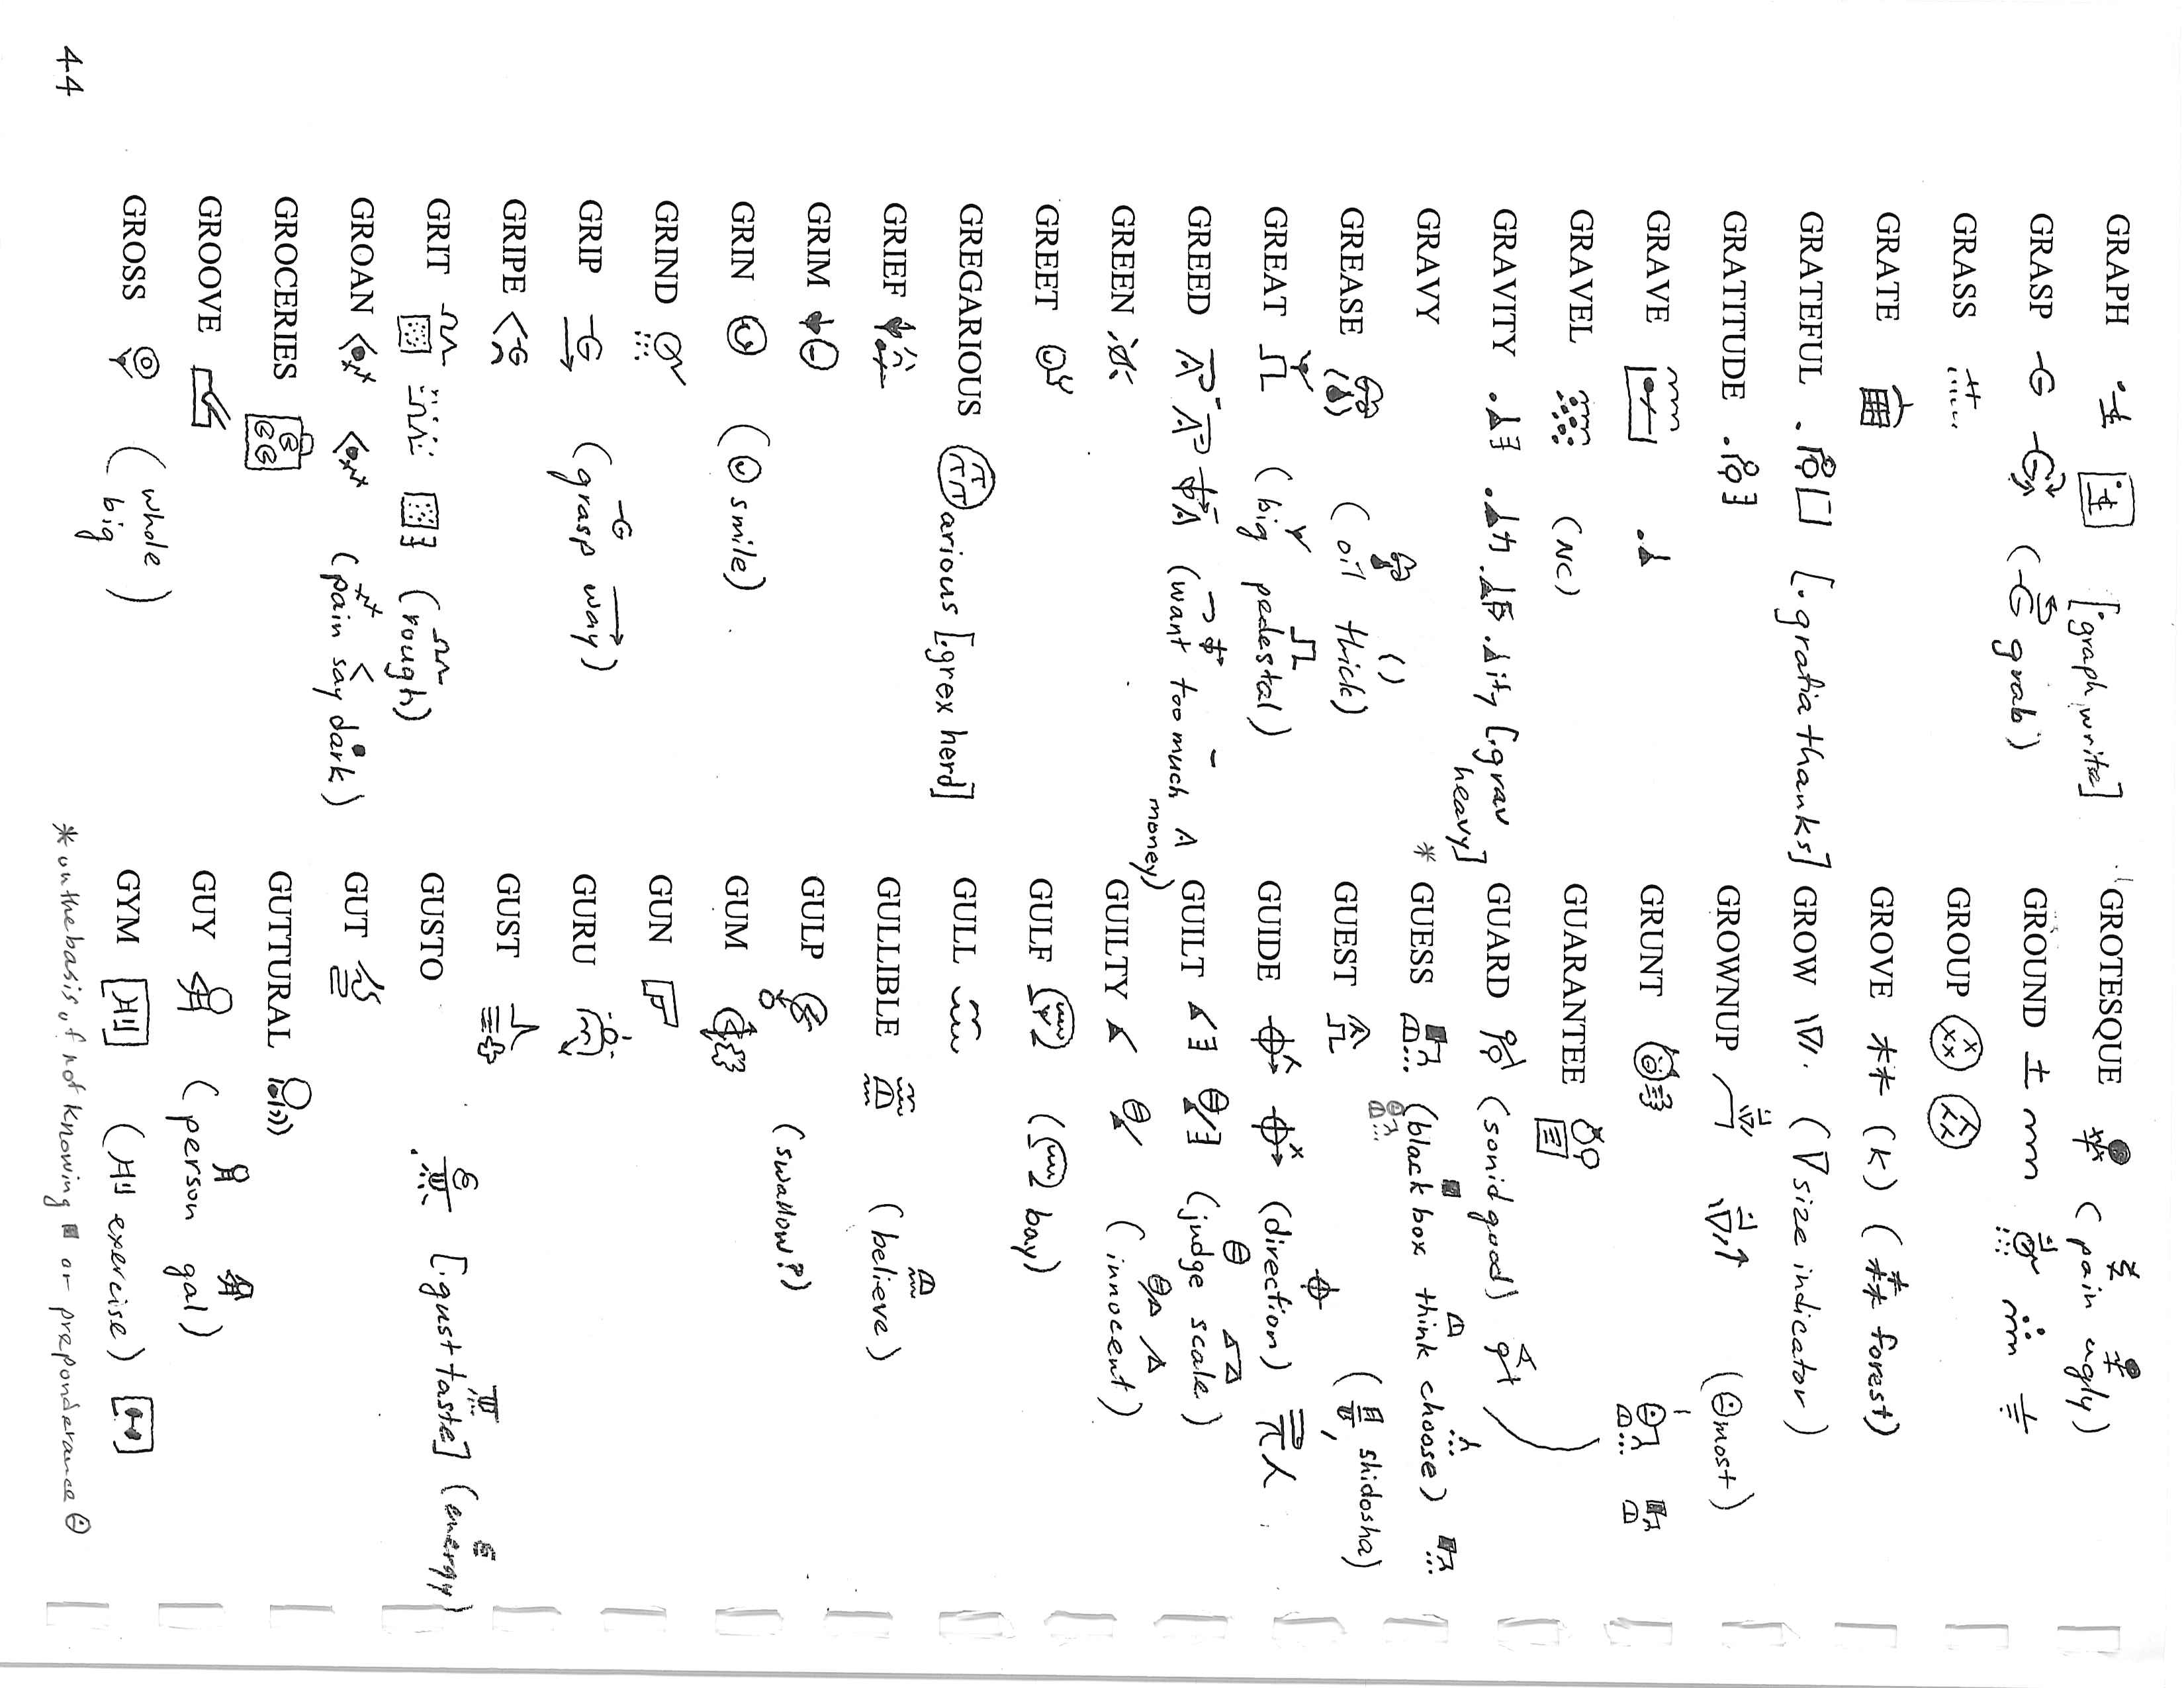 GRAPH [.graph, write]
GRASP ( grab)
GRASS
GRATE
GRATEFUL [.gratia thanks]
GRATITUDE
GRAVE
GRAVEL (NC)
GRAVITY ity [.grav heavy]
GRAVY
GREASE (oil thick)
GREAT (big pedestal)
GREED (want too much A money)
GREEN
GREET
GREGARIOUS arious [.grex herd]
GRIEF
GRIM
GRIN ( smile)
GRIND
GRIP (grasp way)
GRIPE
GRIT (rough)
GROAN (pain say dark)
GROCERIES
GROOVE
GROSS (whole big)
GROTESQUE (pain ugly)
GROUND
GROUP
GROVE (k) ( forest)
GROW ( size indicator)
GROWNUP ( most)
GRUNT
GUARANTEE
GUARD (sonid guod)
* GUESS (black box think choose)
GUEST ( , shidosha)
GUIDE (direction)
GUILT (judge scale)
GUILTY (innocent)
GULF ( bay)
GULL
GULLIBLE (believe)
GULP (swallow?)
GUM
GUN
GURU
GUST
GUSTO [.gust taste] (energy)
GUT
GUTTURAL
GUY (person gal)
GYM ( exercise)
* on the basis of not knowing or preponderance
44